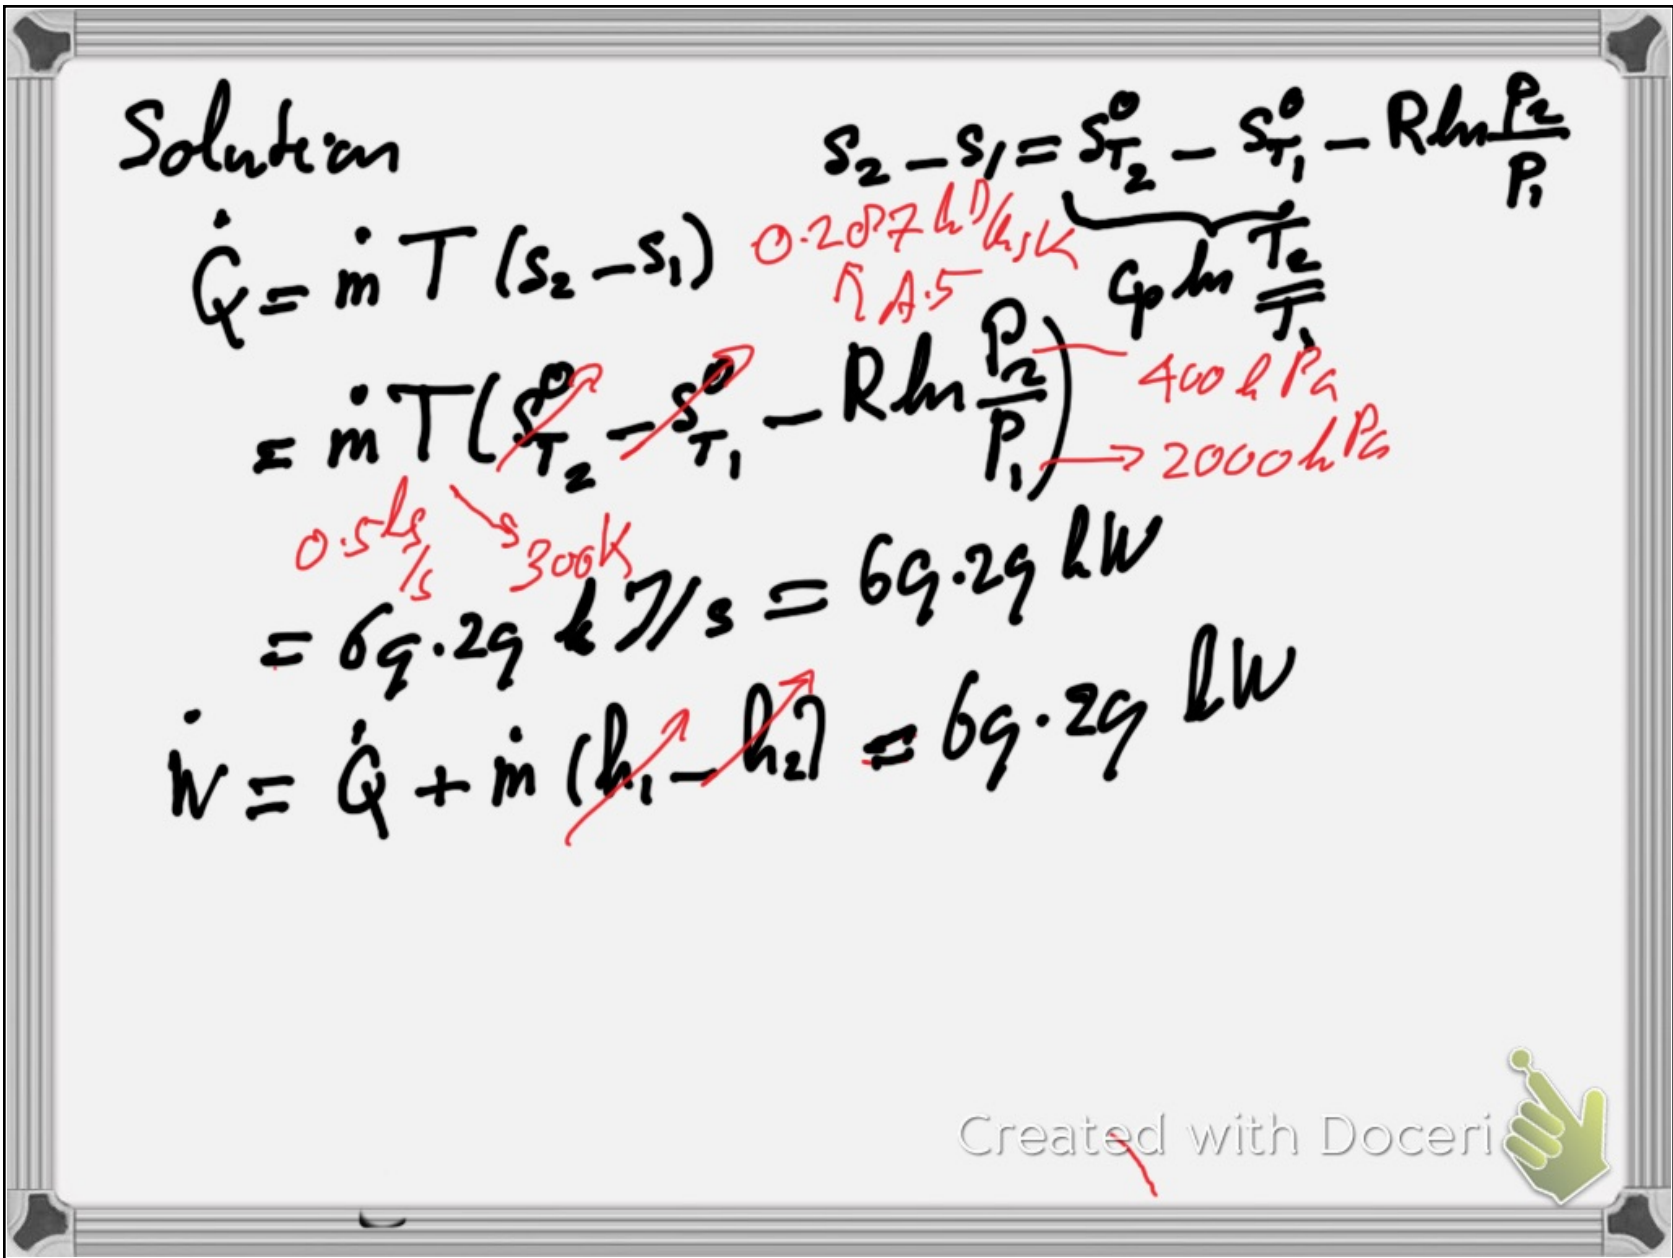 Solution
s₂ – s₁ = s⁰_T₂ – s⁰_T₁ – R ln P₂/P₁
Q̇ = ṁ T (s₂ – s₁)
0.287 kJ/kgK
A.5
Cp ln T₂/T₁
= ṁ T (s⁰_T₂ – s⁰_T₁ – R ln P₂/P₁)
400 kPa
2000 kPa
0.5 kg/s
300K
= 69.29 kJ/s = 69.29 kW
Ẇ = Q̇ + ṁ (h₁ – h₂) = 69.29 kW
Created with Doceri